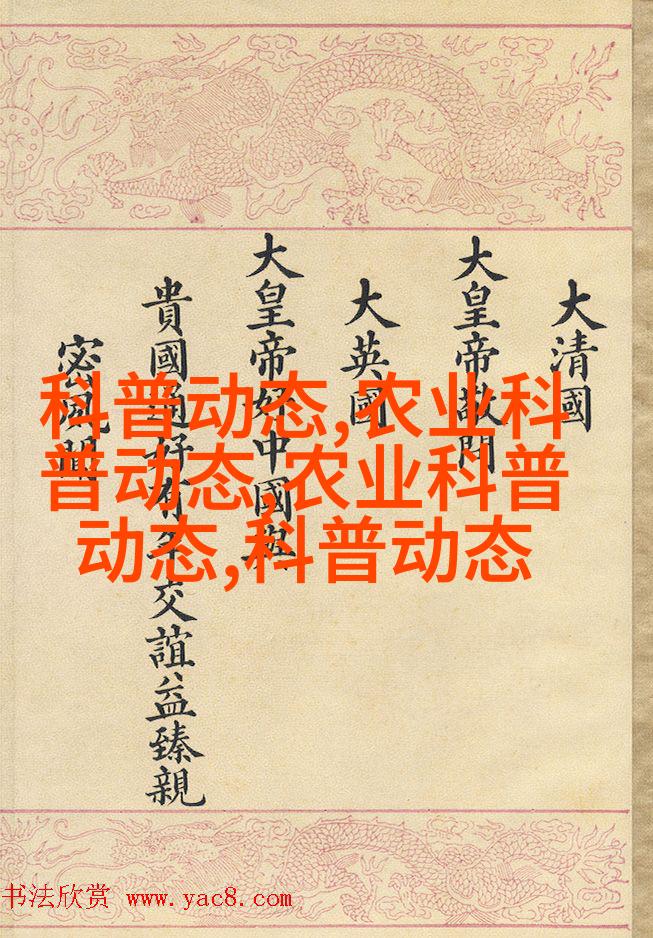 大清國
大皇帝敬問
大英國
大皇帝好中國與
貴國通好有年交誼益臻親
密
科普动态,农业科
普动态,农业科普
动态,科普动态
书法欣赏 www.yac8.com